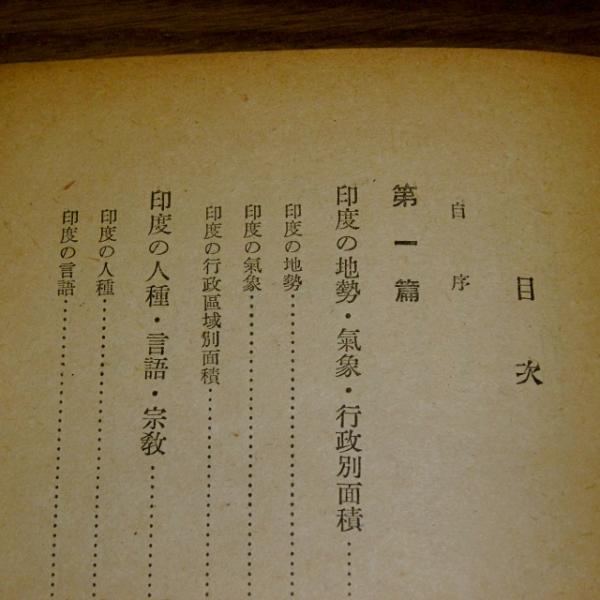 目次
自序
第一篇
印度の地勢・氣象・行政別面積……
印度の地勢……
印度の氣象……
印度の行政區域別面積……
印度の人種・言語・宗教……
印度の人種……
印度の言語……